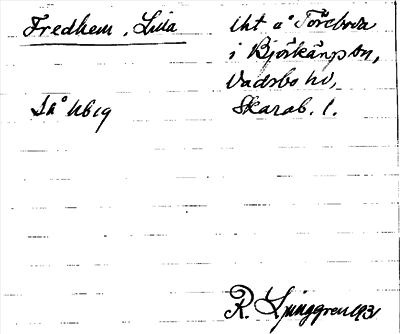 Fredhem, Lilla
Uht a° Töreboda
i Björkängs sn,
Vadsbo hd,
Skarab. l.
R. Ljunggren 1931